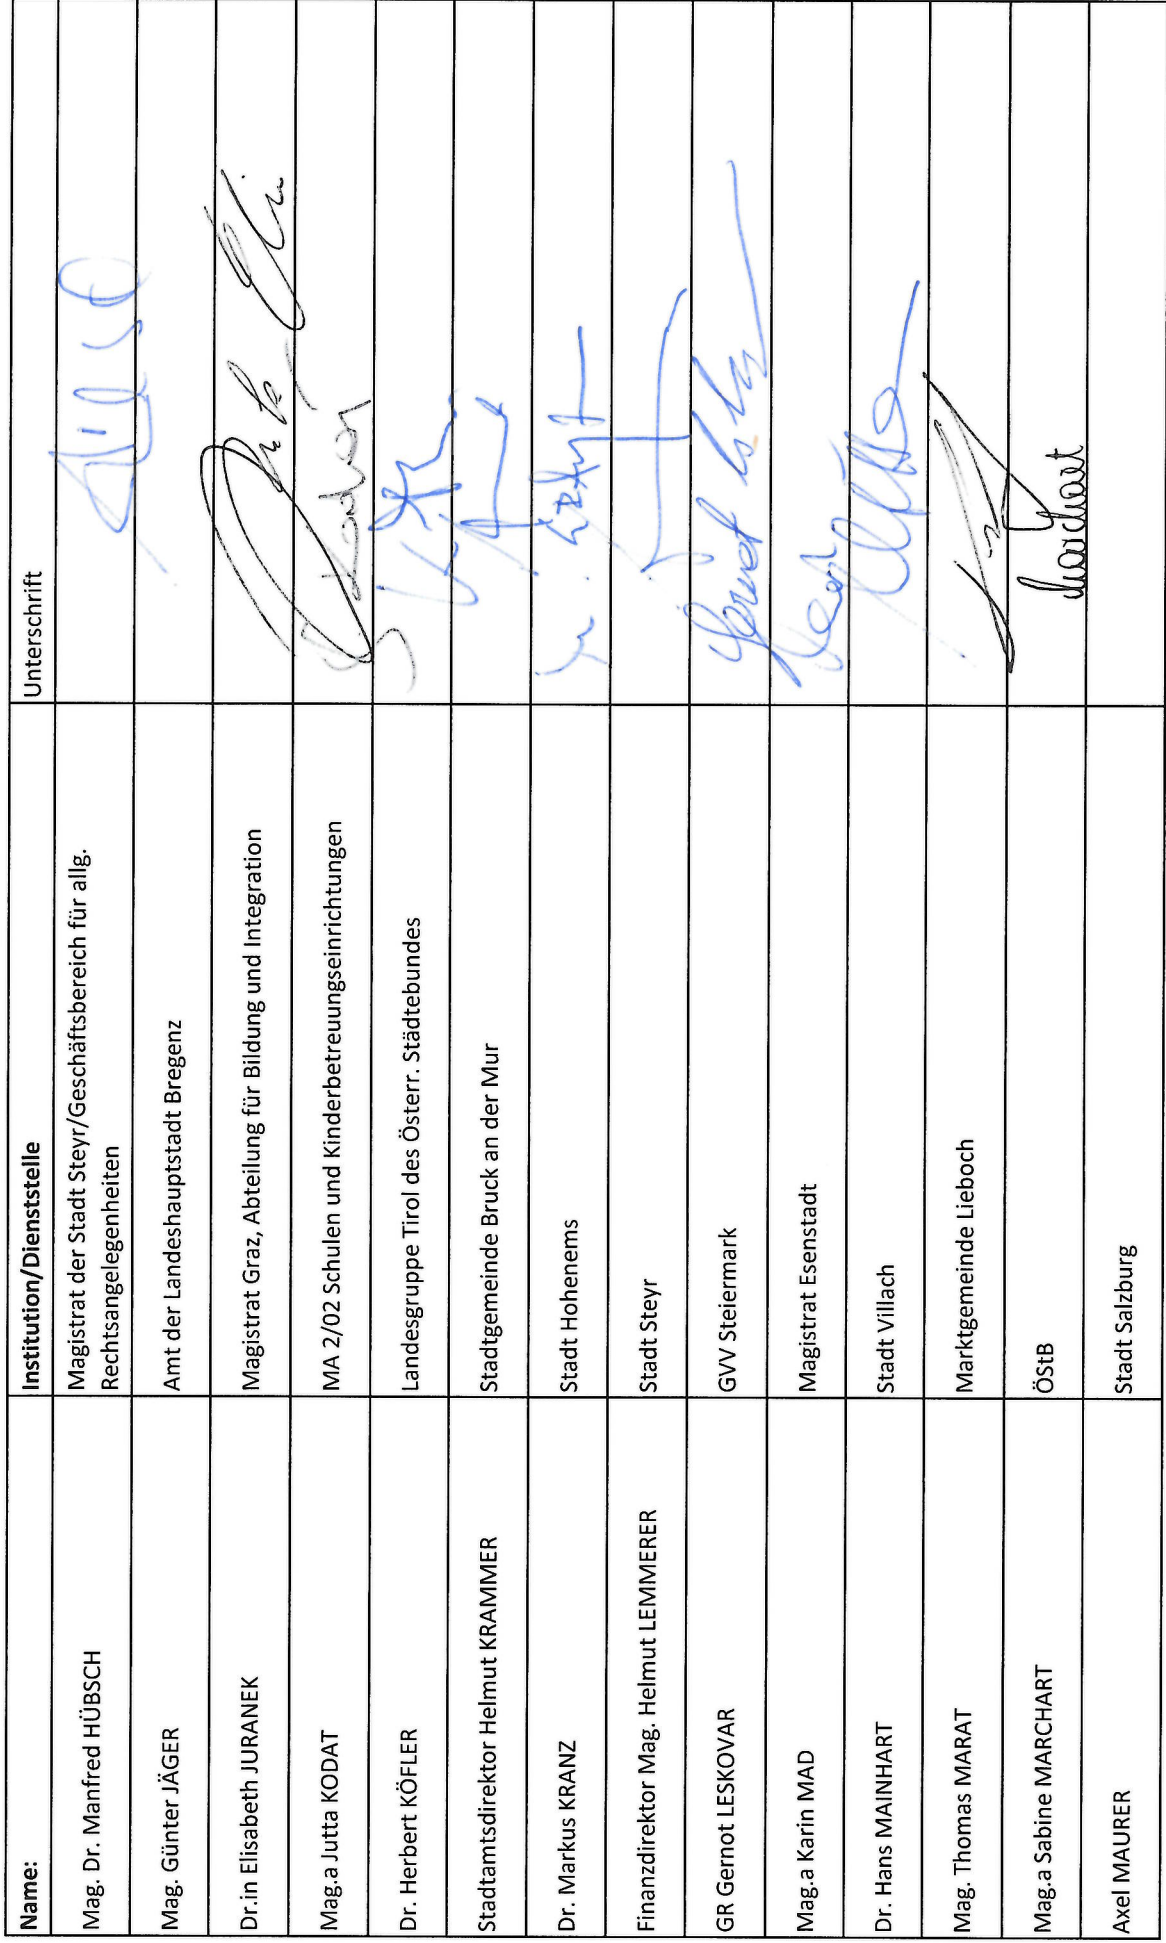 Name: Institution/Dienststelle Unterschrift
Mag. Dr. Manfred HÜBSCH Magistrat der Stadt Steyr/Geschäftsbereich für allg.
Rechtsangelegenheiten
Mag. Günter JÄGER Amt der Landeshauptstadt Bregenz
Dr.in Elisabeth JURANEK Magistrat Graz, Abteilung für Bildung und Integration
Mag.a Jutta KODAT MA 2/02 Schulen und Kinderbetreuungseinrichtungen
Dr. Herbert KÖFLER Landesgruppe Tirol des Österr. Städtebundes
Stadtamtsdirektor Helmut KRAMMER Stadtgemeinde Bruck an der Mur
Dr. Markus KRANZ Stadt Hohenems
Finanzdirektor Mag. Helmut LEMMERER Stadt Steyr
GR Gernot LESKOVAR GVV Steiermark
Mag.a Karin MAD Magistrat Esenstadt
Dr. Hans MAINHART Stadt Villach
Mag. Thomas MARAT Marktgemeinde Lieboch
Mag.a Sabine MARCHART ÖStB Marchart
Axel MAURER Stadt Salzburg